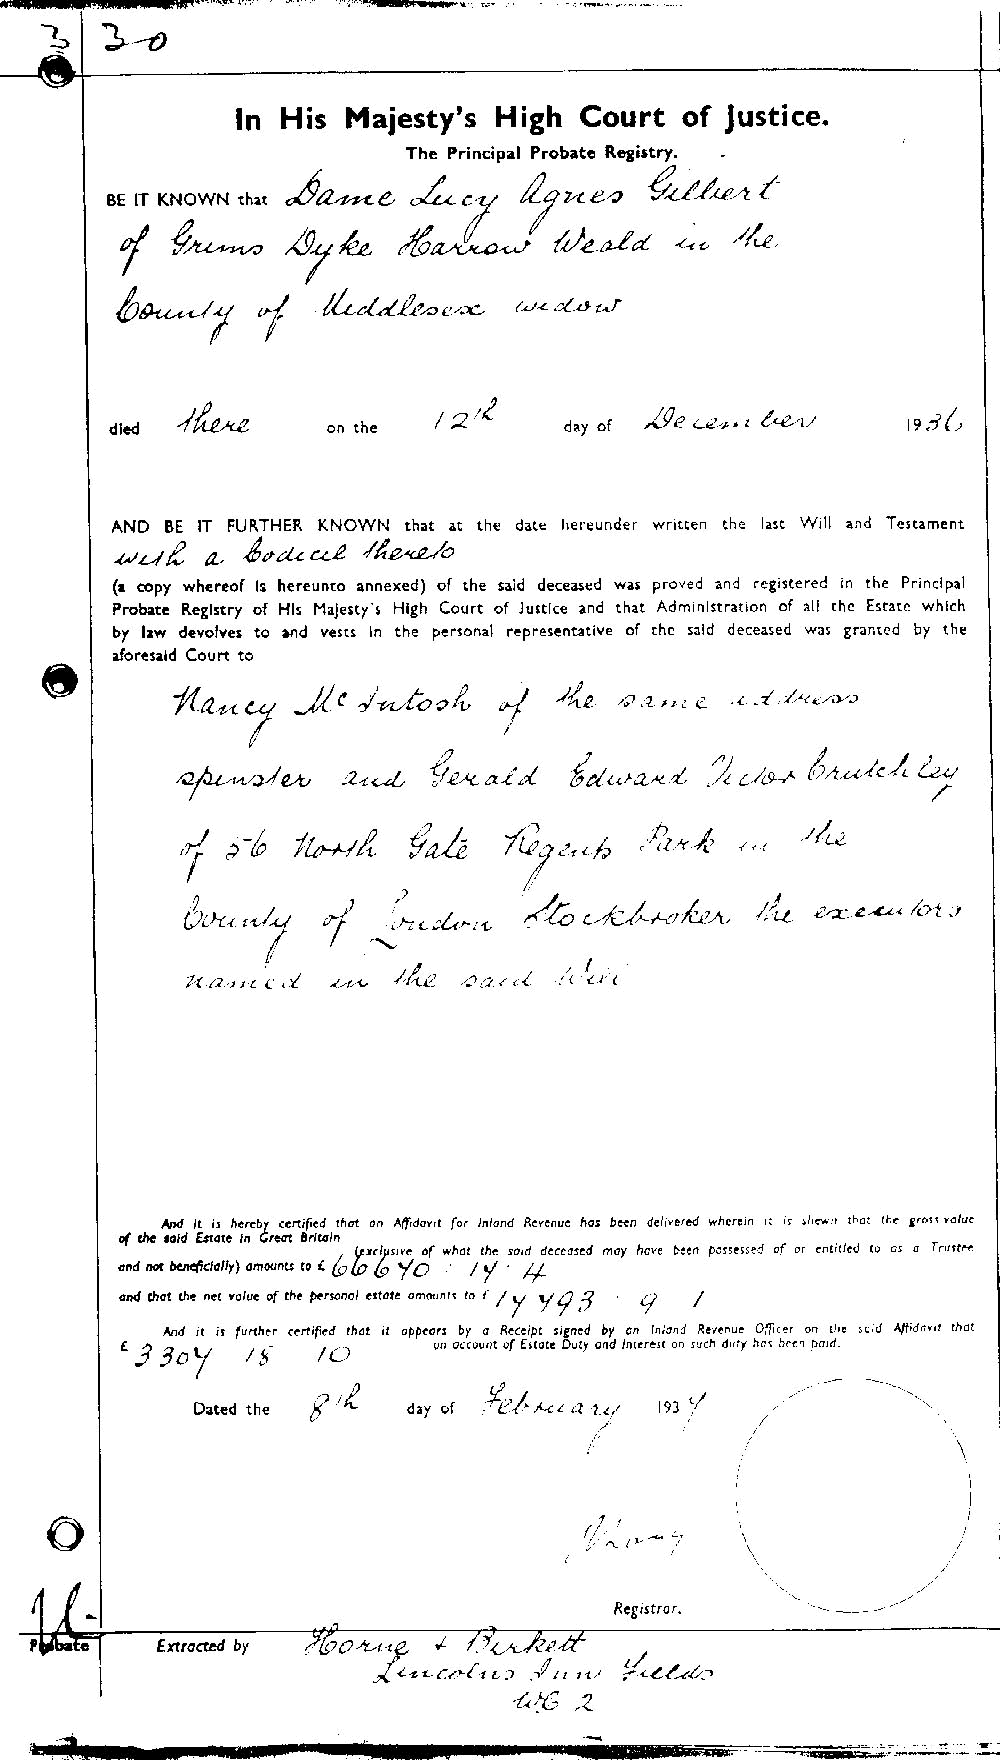 3 30
In His Majesty's High Court of Justice.
The Principal Probate Registry.
BE IT KNOWN that Dame Lucy Agnes Gilbert
of Grims Dyke Harrow Weald in the
County of Middlesex widow
died there on the 12th day of December 1936
AND BE IT FURTHER KNOWN that at the date hereunder written the last Will and Testament
with a Codicil thereto
(a copy whereof is hereunto annexed) of the said deceased was proved and registered in the Principal
Probate Registry of His Majesty's High Court of Justice and that Administration of all the Estate which
by law devolves to and vests in the personal representative of the said deceased was granted by the
aforesaid Court to
Nancy McIntosh of the same address
spinster and Gerald Edward Victor Crutchley
of 56 North Gate Regents Park in the
County of London Stockbroker the executors
named in the said Will
And it is hereby certified that an Affidavit for Inland Revenue has been delivered wherein it is shewn that the gross value
of the said Estate in Great Britain
(exclusive of what the said deceased may have been possessed of or entitled to as a Trustee
and not beneficially) amounts to £ 66670 : 17 : 4
and that the net value of the personal estate amounts to £ 17793 : 9 1
And it is further certified that it appears by a Receipt signed by an Inland Revenue Officer on the said Affidavit that
£ 3307 18 10 on account of Estate Duty and interest on such duty has been paid.
Dated the 8th day of February 1937
Registrar.
Probate Extracted by Horne & Birkett
Lincolns Inn Fields
WC 2